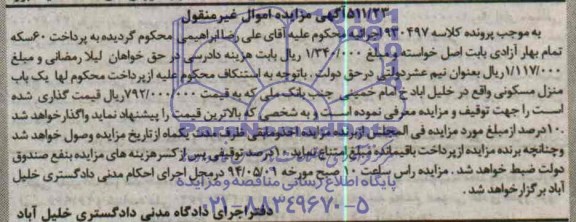 ۵۱۱/۲۳آگهی مزایده اموال غیرمنقول
به موجب پرونده کلاسه ۹۳۰۴۹۷ اجرائیه محکوم علیه آقای علی رضا ابراهیمی محکوم گردیده به پرداخت ۶۰سکه
تمام بهار آزادی بابت اصل خواسته مبلغ ۱/۳۴۰/۰۰۰ ریال بابت هزینه دادرسی در حق خواهان لیلا رمضانی و مبلغ
۱/۱۱۷/۰۰۰ریال بعنوان نیم عشردولتی درحق دولت . باتوجه به استنکاف محکوم علیه ازپرداخت محکوم لها یک باب
منزل مسکونی واقع در خلیل آباد خ امام خمینی جنب بانک ملی که به قیمت ۷۹۲/۰۰۰/۰۰۰ریال قیمت گذاری شده
است را جهت توقیف و مزایده معرفی نموده است و به شخصی که بالاترین قیمت را پیشنهاد نماید واگذارخواهد شد
.۱۰درصد ازمبلغ مورد مزایده فی المجلس از برنده مزایده اخذ ومابقی ظرف مدت یکماه ازتاریخ مزایده وصول خواهد شد
وچنانچه برنده مزایده ازپرداخت باقیمانده مبلغ امتناع نماید ۱۰درصد توقیفی پس از کسرهزینه های مزایده بنفع صندوق
دولت ضبط خواهد شد . مزایده راس ساعت ۱۰ صبح مورخه ۹۴/۰۵/۰۹ درمحل اجرای احکام مدنی دادگستری خلیل
آباد برگزارخواهد شد .
دفتراجرای دادگاه مدنی دادگستری خلیل آباد
پایگاه اطلاع رسانی مناقصه و مزایده
۰۲۱-۸۸۳۴۹۶۷۰-۵